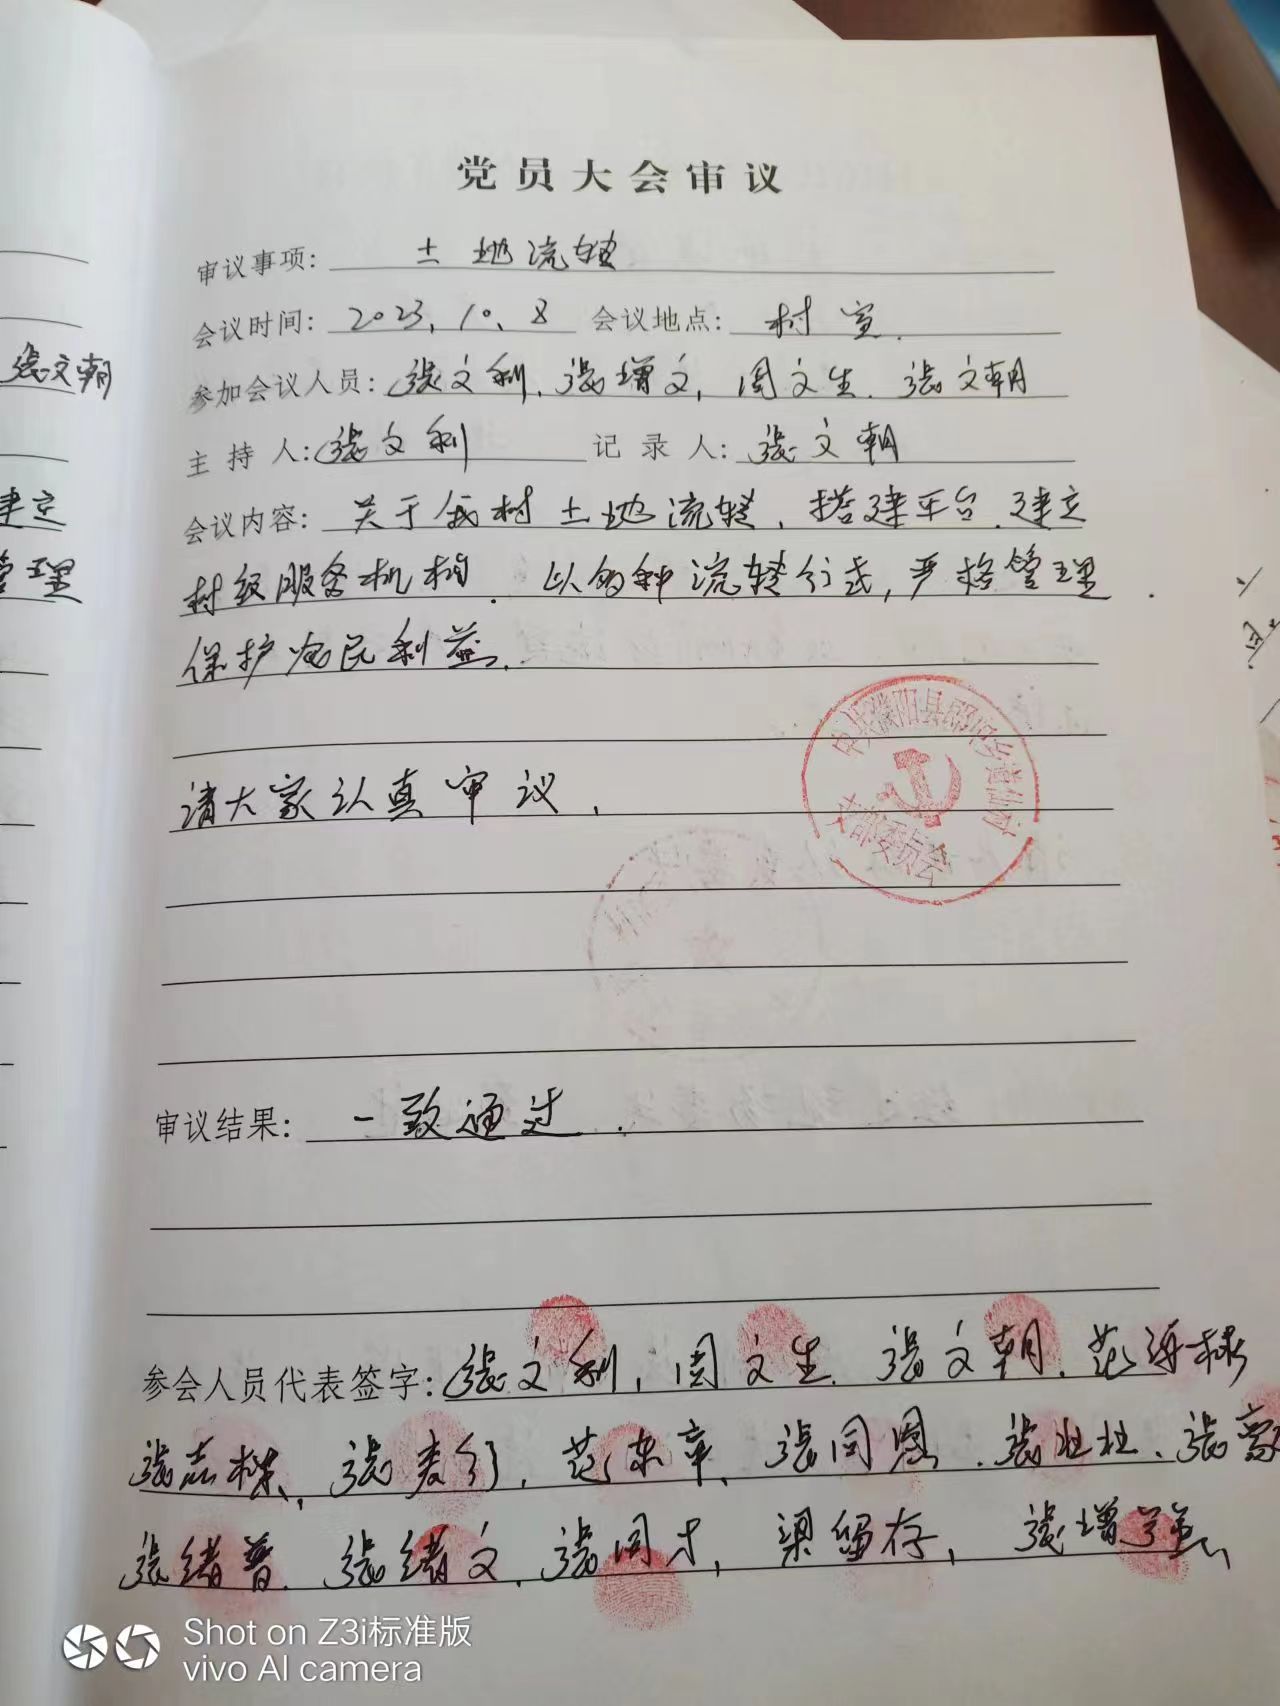 党员大会审议
审议事项: 土地流转
会议时间: 2023.10.8 会议地点: 村室.
张文朝
参加会议人员: 张文利、张增文, 周文生. 张文朝
主持人: 张文利 记录人: 张文朝
建立
会议内容: 关于我村土地流转, 搭建平台. 建立
管理
村级服务机构. 以多种流转方式, 严格管理.
保护农民利益.
中共濮阳县郎中乡
支部委员会
请大家认真审议,
审议结果: 一致通过.
参会人员代表签字: 张文利, 周文生. 张文朝. 范
张 张 范东章、张同 张壮壮、张豪
张绪普. 张绪文. 张同才, 梁留存, 张增强
Shot on Z3i标准版
vivo AI camera